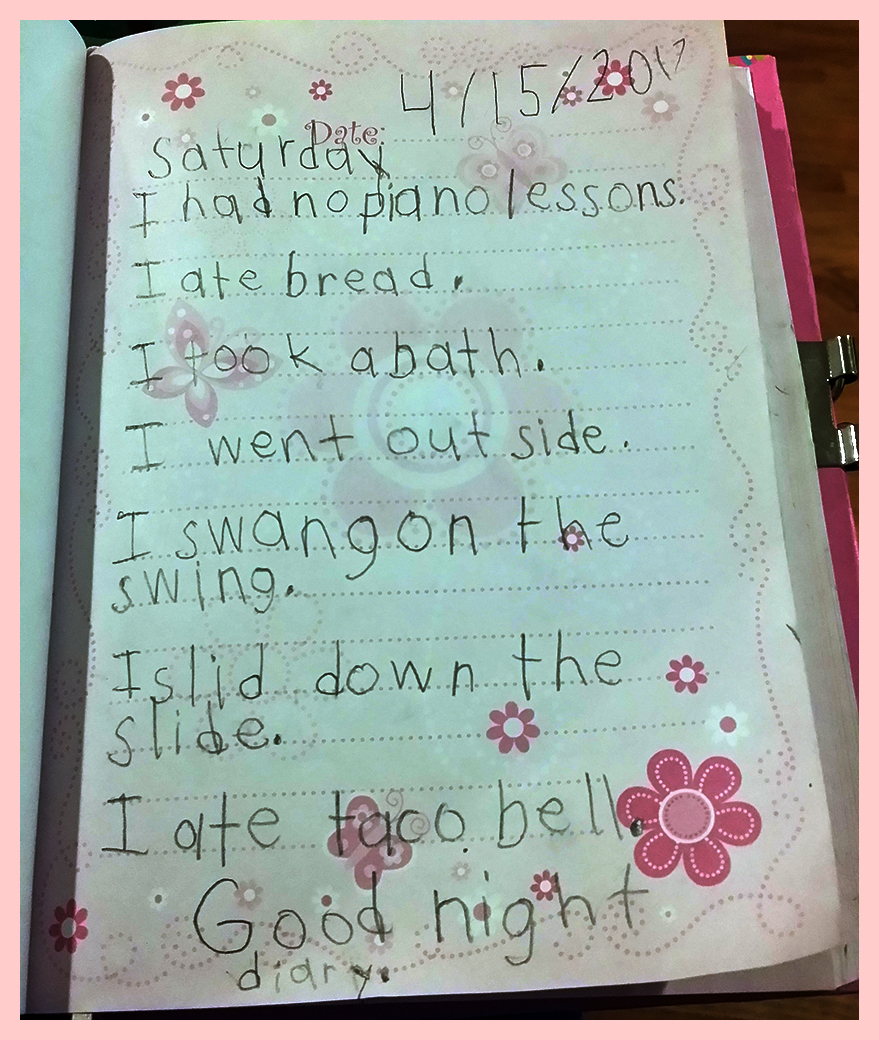 4/15/2017
Date:
Saturday
I had no piano lessons.
I ate bread.
I took a bath.
I went out side.
I swang on the
swing.
I slid down the
slide.
I ate taco bell.
Good night
diary.